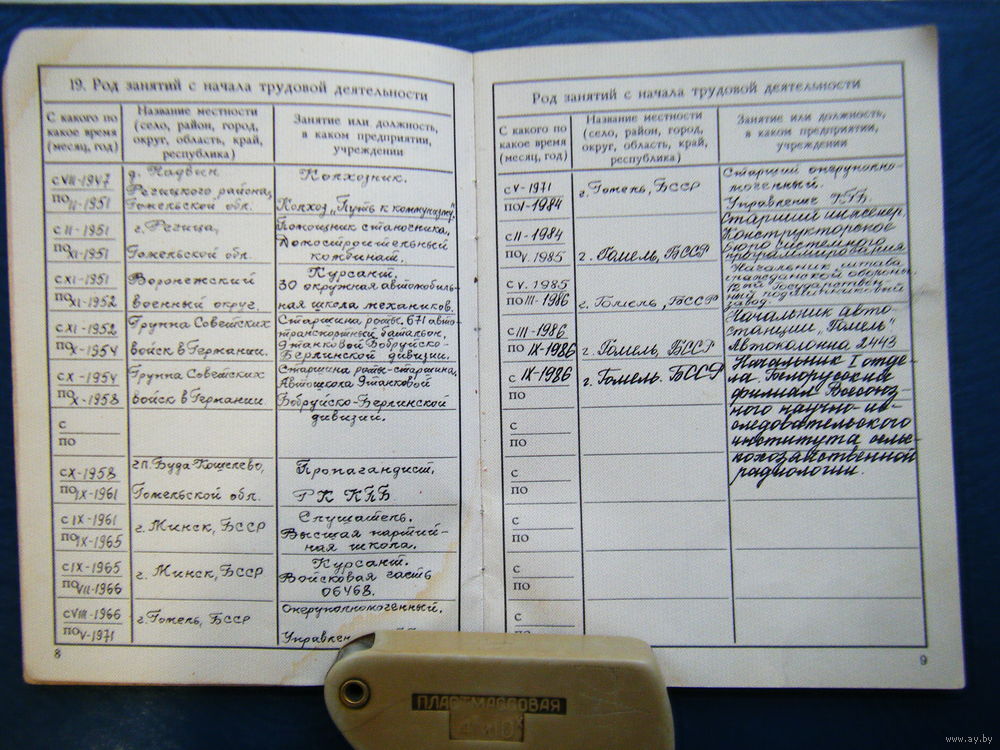 19. Род занятий с начала трудовой деятельности
С какого по
какое время
(месяц, год)
Название местности
(село, район, город,
округ, область, край,
республика)
Занятие или должность,
в каком предприятии,
учреждении
с VIII-1947
по II-1951
д. Надвин
Речицкого района,
Гомельской обл.
Колхозник.
Колхоз „Путь к коммунизму".
с II-1951
по XI-1951
г. Речица,
Гомельской обл.
Помощник станочника,
Домостроительный
комбинат.
с XI-1951
по XI-1952
Воронежский
военный округ.
Курсант.
30 окружная автомобиль-
ная школа механиков.
с XI-1952
по X-1954
Группа Советских
войск в Германии.
Старшина роты. 671 авто-
транспортный батальон,
9 танковой Бобруйско-
Берлинской дивизии.
с X-1954
по X-1958
Группа Советских
войск в Германии
Старшина роты-старшина,
Автошкола 9 танковой
Бобруйско-Берлинской
дивизии.
с
по
с X-1958
по IX-1961
гп. Буда Кошелево,
Гомельской обл.
Пропагандист,
РК КПБ
с IX-1961
по IX-1965
г. Минск, БССР
Слушатель.
Высшая партий-
ная школа.
с IX-1965
по VII-1966
г. Минск, БССР
Курсант.
Войсковая часть
06468.
с VIII-1966
по V-1971
г. Гомель, БССР
Оперуполномоченный.
Управлен
8
Род занятий с начала трудовой деятельности
С какого по
какое время
(месяц, год)
Название местности
(село, район, город,
округ, область, край,
республика)
Занятие или должность,
в каком предприятии,
учреждении
с V-1971
по I-1984
г. Гомель, БССР
Старший оперуполно-
моченный.
Управление КГБ.
с II-1984
по V. 1985
г. Гомель, БССР
Старший инженер.
Конструкторское
бюро системного
программирования
с V. 1985
по III-1986
г. Гомель, БССР
Начальник штаба
гражданской обороны.
Государствен-
ный подшипниковый
завод.
с III-1986
по IX-1986
г. Гомель, БССР
Начальник авто-
станции „Гомель"
Автоколонна 2443
с IX-1986
по
г. Гомель. БССР
Начальник I отде-
ла Белорусский
филиал Всесоюз
ного научно-ис-
следовательского
института сель-
скохозяйственной
радиологии.
с
по
с
по
с
по
с
по
с
9
ПЛАСТМАССОВАЯ
www.ay.by